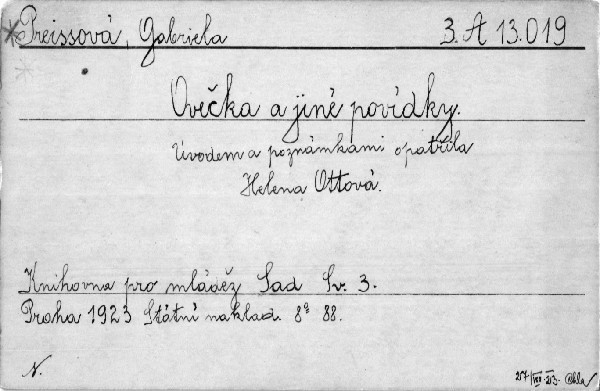 Preissová, Gabriela 3.A 13.019
Ovečka a jiné povídky.
Úvodem a poznámkami opatřila
Helena Ottová.
Knihovna pro mládež Sad Sv. 3.
Praha 1923 Státní naklad. 8° 88.
N.